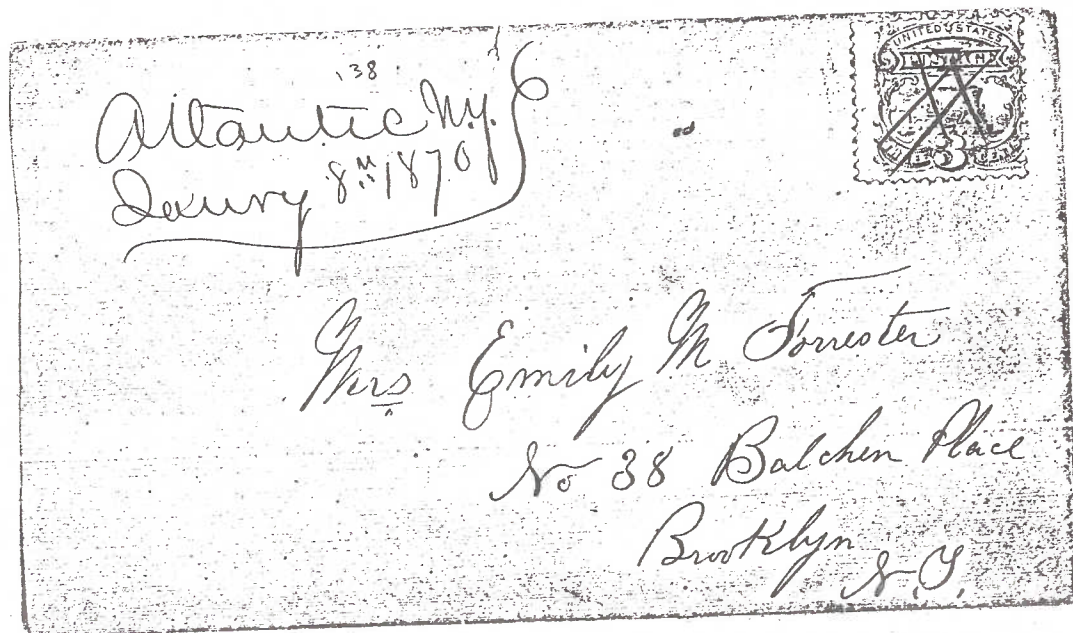 138
Atlantic N.Y.
Janury 8th 1870
UNITED STATES
3
Mrs Emily M Forrester
No 38 Balchen Place
Brooklyn
N.Y.